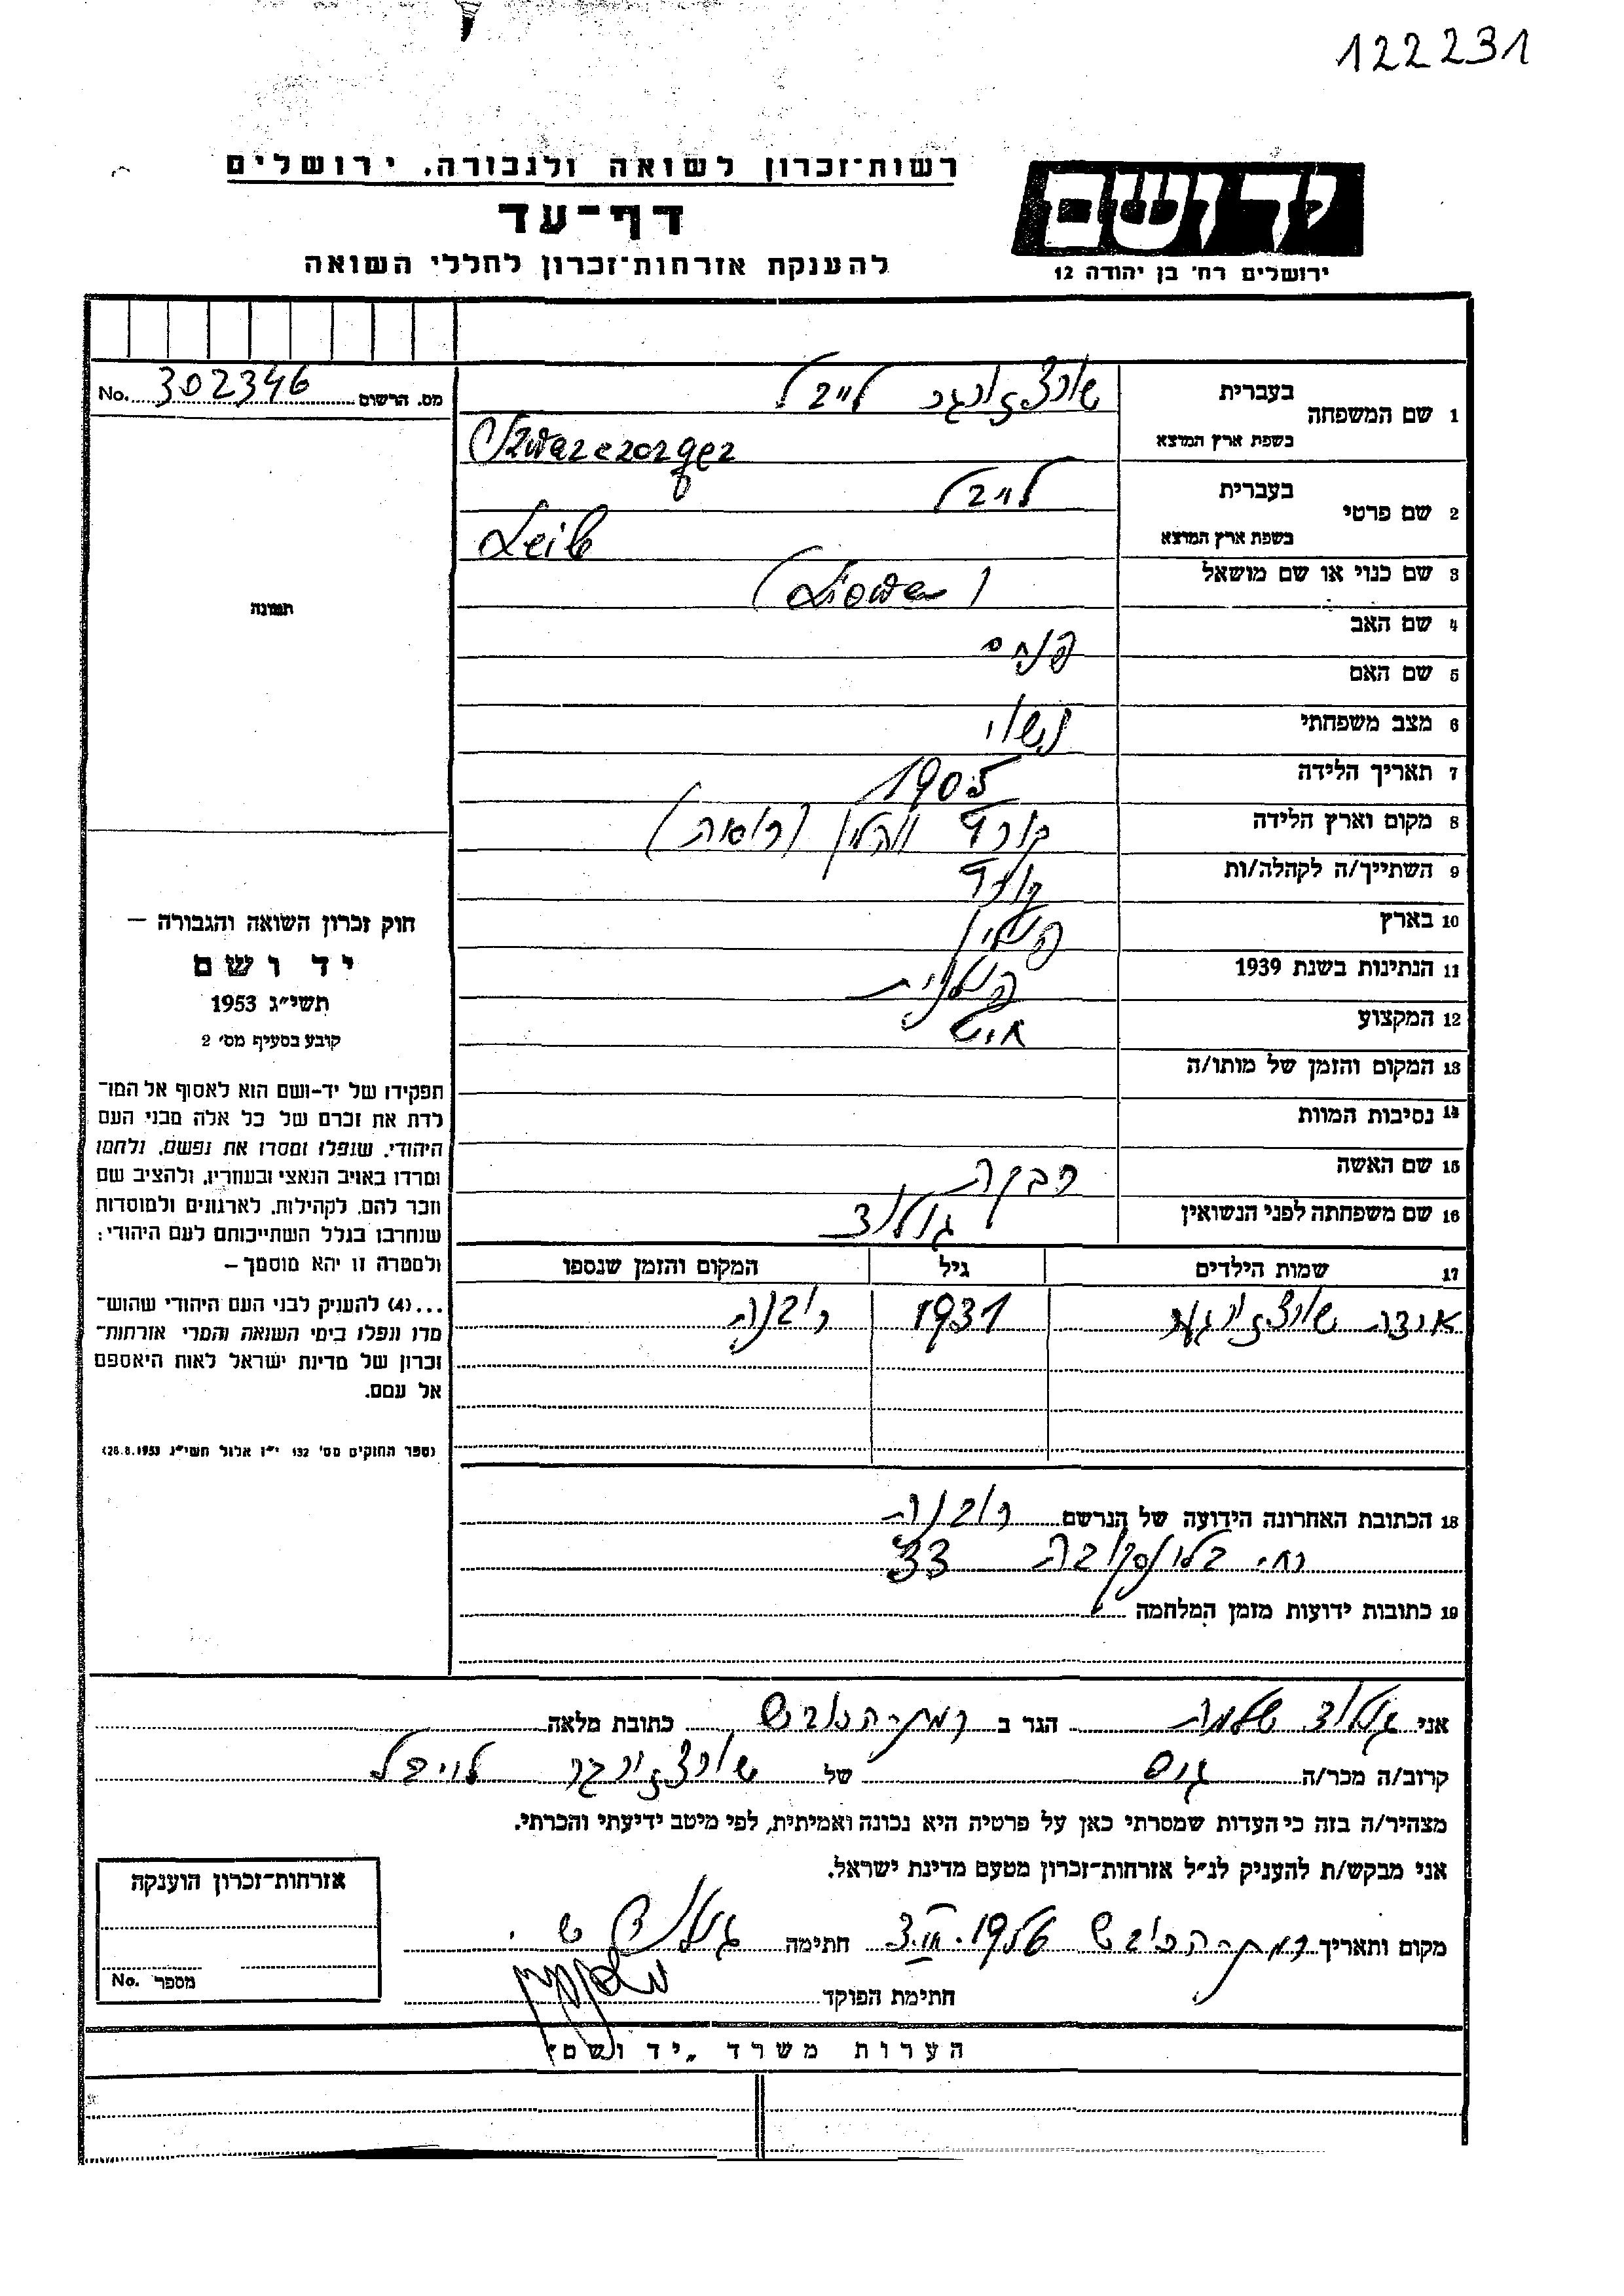 122231
רשות־זכרון לשואה ולגבורה, ירושלים
דף־עד
להענקת אזרחות־זכרון לחללי השואה
יד ושם
ירושלים רח׳ בן יהודה 12
מס. הרשום 302346 No.
1 שם המשפחה
בעברית
שורצזורגר לייבל
בשפת ארץ המוצא
Szwarczorger
2 שם פרטי
בעברית
לייבל
בשפת ארץ המוצא
Leib
3 שם כנוי או שם מושאל
4 שם האב
פנחס
5 שם האם
6 מצב משפחתי
נשוי
7 תאריך הלידה
1905
8 מקום וארץ הלידה
9 השתייך/ה לקהלה/ות
10 בארץ
פולין
11 הנתינות בשנת 1939
פולנית
12 המקצוע
13 המקום והזמן של מותו/ה
14 נסיבות המוות
15 שם האשה
רבקה
16 שם משפחתה לפני הנשואין
17 שמות הילדים גיל המקום והזמן שנספו
שורצזורגר 1931 רובנה
18 הכתובת האחרונה הידועה של הנרשם רובנה
רח׳ 33
19 כתובות ידועות מזמן המלחמה
תמונה
חוק זכרון השואה והגבורה —
יד ושם
תשי״ג 1953
קובע בסעיף מס׳ 2
תפקידו של יד-ושם הוא לאסוף אל המו־
לדת את זכרם של כל אלה מבני העם
היהודי, שנפלו ומסרו את נפשם, נלחמו
ומרדו באויב הנאצי ובעוזריו, ולהציב שם
וזכר להם, לקהילות, לארגונים ולמוסדות
שנחרבו בגלל השתייכותם לעם היהודי;
ולמטרה זו יהא מוסמך –
...(4) להעניק לבני העם היהודי שהוש־
מדו ונפלו בימי השואה והמרי אזרחות־
זכרון של מדינת ישראל לאות היאספם
אל עמם.
(ספר החוקים מס׳ 132 י״ז אלול תשי״ג 28.8.1953)
אני שלמה הגר ב רמת-הכובש כתובת מלאה
קרוב/ה מכר/ה גיס של שורצזורגר לייבל
מצהיר/ה בזה כי העדות שמסרתי כאן על פרטיה היא נכונה ואמיתית, לפי מיטב ידיעתי והכרתי.
אני מבקש/ת להעניק לנ״ל אזרחות־זכרון מטעם מדינת ישראל.
מקום ותאריך רמת-הכובש 3.III.1956 חתימה
חתימת הפוקד
אזרחות־זכרון הוענקה
מספר No.
הערות משרד „יד ושם״